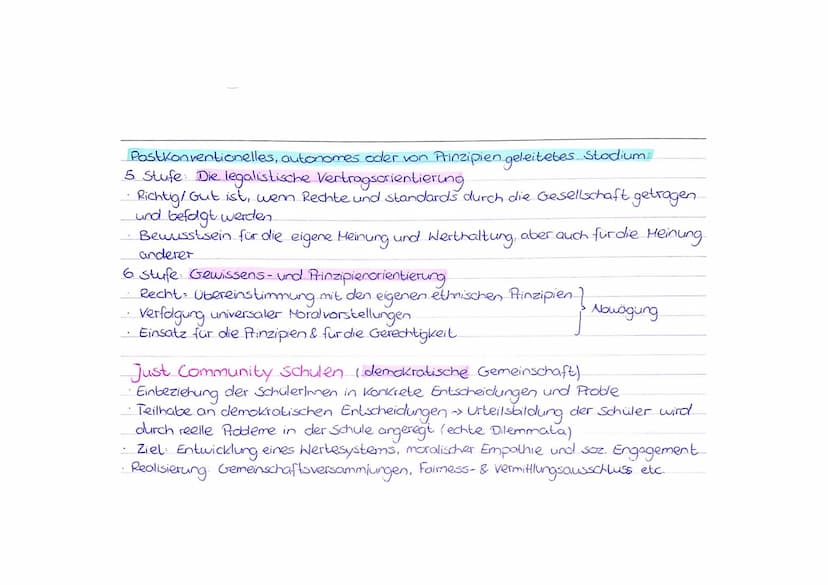 Postkonventionelles, autonomes oder von Prinzipien geleitetes Stadium:
5 Stufe: Die legalistische Vertragsorientierung
· Richtig/Gut ist, wenn Rechte und Standards durch die Gesellschaft getragen
und befolgt werden
· Bewusstsein für die eigene Meinung und Werthaltung, aber auch für die Meinung
anderer
6 Stufe: Gewissens- und Prinzipienorientierung
· Recht: Übereinstimmung mit den eigenen ethmischen Prinzipien
· Verfolgung universaler Moralvorstellungen
· Einsatz für die Prinzipien & für die Gerechtigkeit
} Abwägung
Just Community Schulen (demokratische Gemeinschaft)
· Einbeziehung der SchülerInnen in konkrete Entscheidungen und Proble
· Teilhabe an demokratischen Entscheidungen → Urteilsbildung der Schüler wird
durch reelle Probleme in der Schule angeregt (echte Dilemmata)
· Ziel: Entwicklung eines Wertesystems, moralischer Empathie und soz. Engagement
· Realisierung: Gemeinschaftsversammlungen, Fairness- & Vermittlungsausschuss etc.